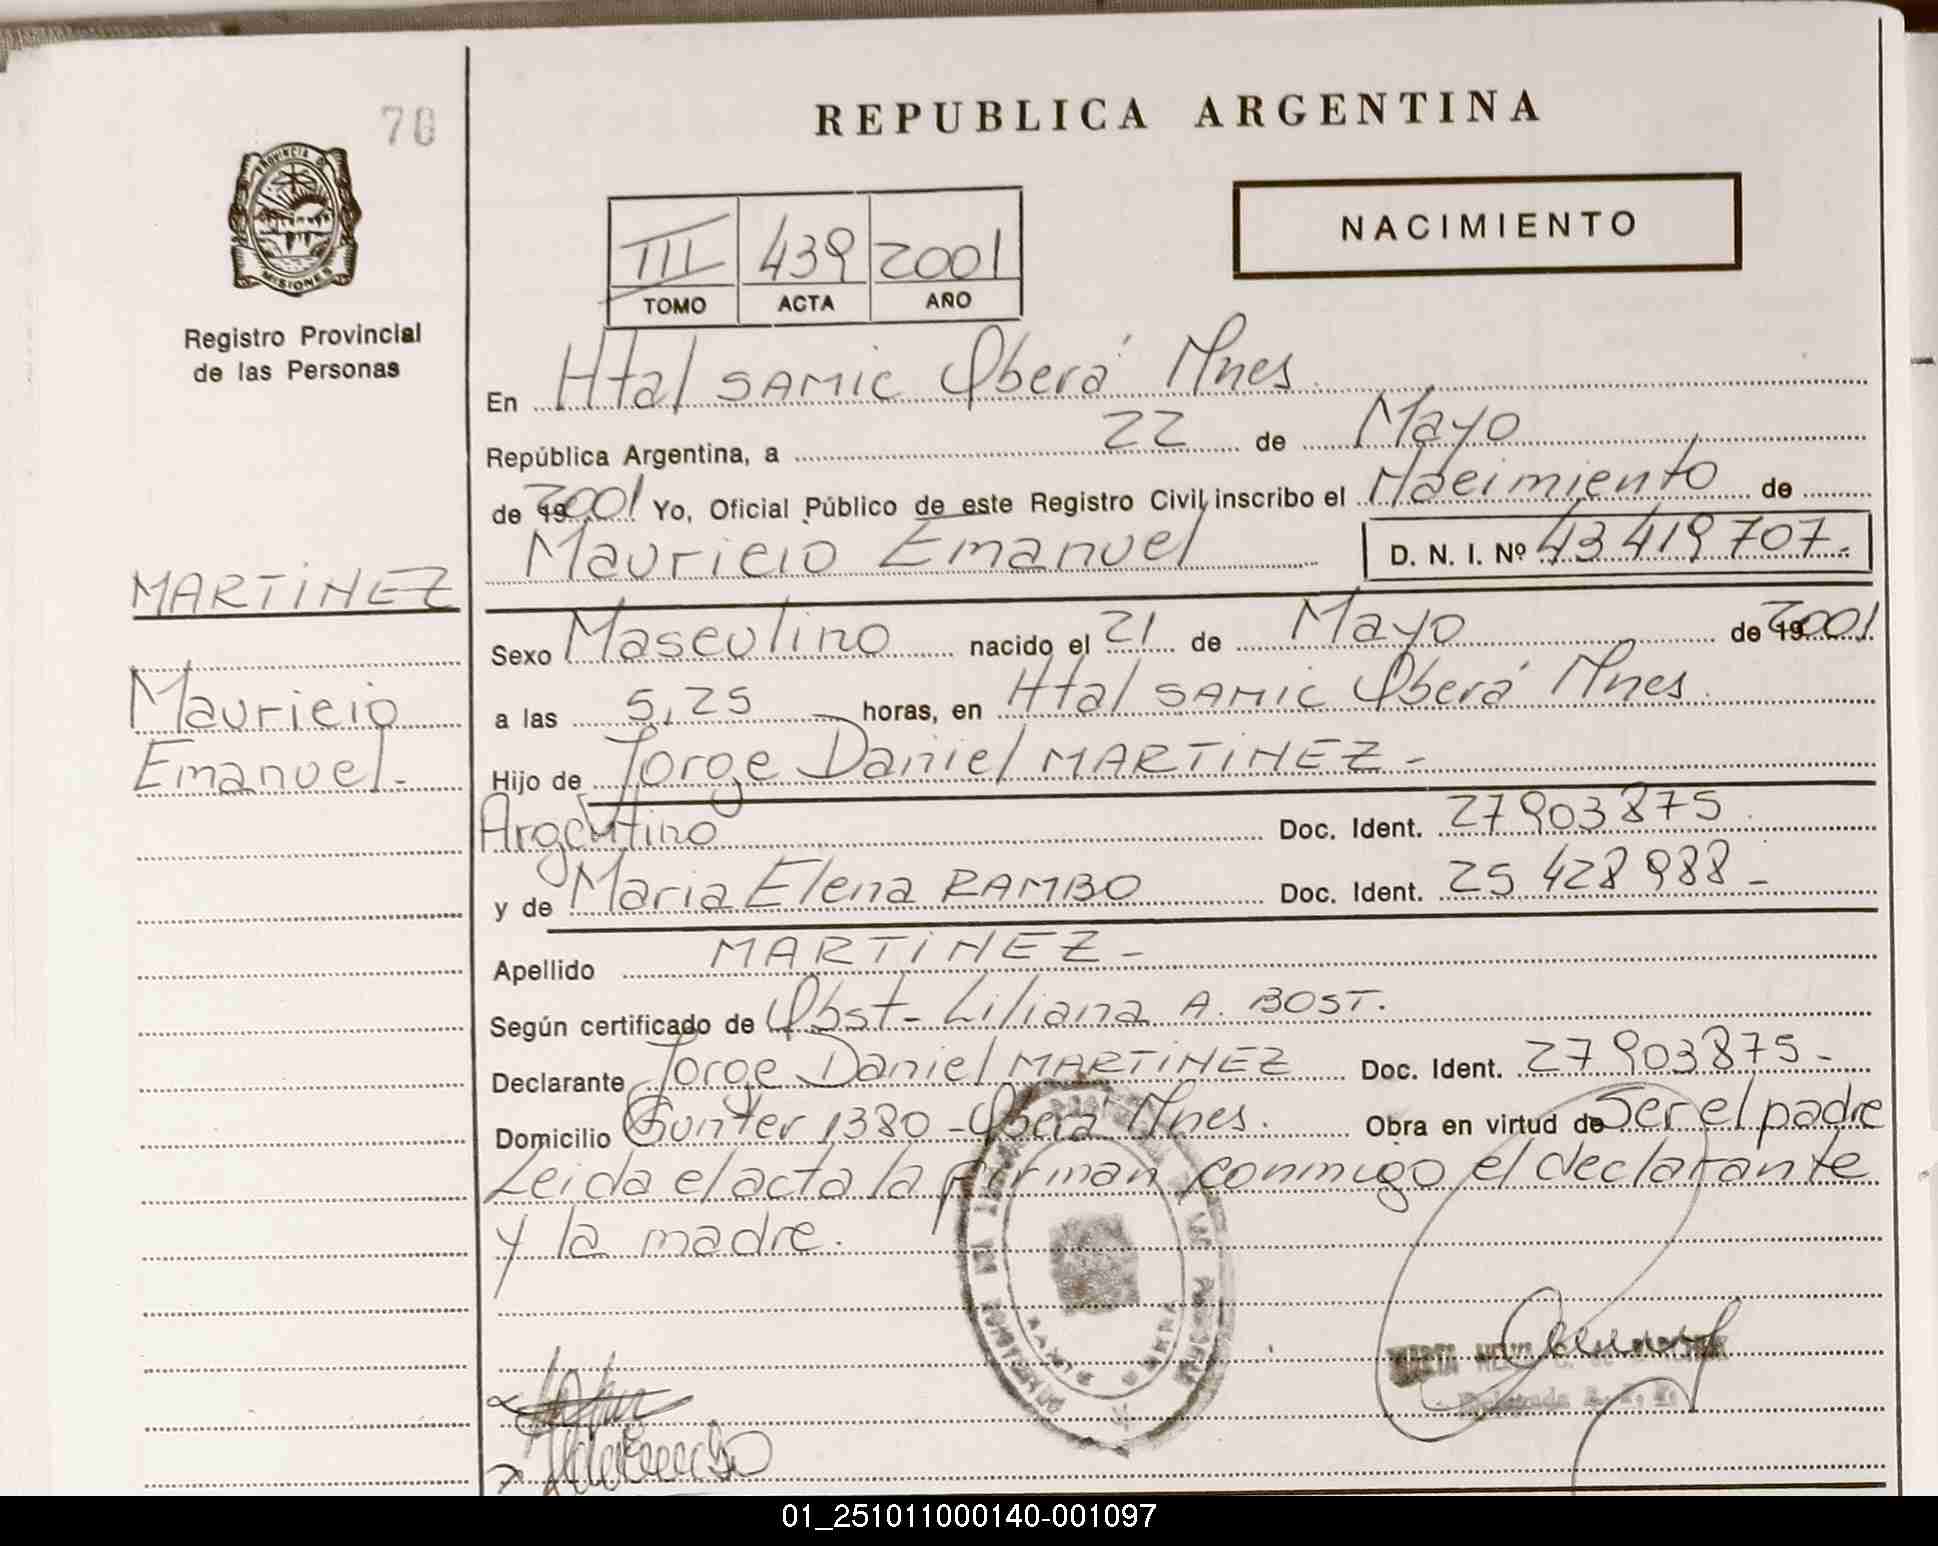 70
REPUBLICA ARGENTINA
PROVINCIA D
MISIONES
Registro Provincial
de las Personas
NACIMIENTO
III 439 2001
TOMO ACTA AÑO
En Htal SAMIC Oberá Mnes.
República Argentina, a 22 de Mayo
de 19 2001 Yo, Oficial Público de este Registro Civil inscribo el Nacimiento de
Mauricio Emanuel D. N. I. Nº 43 419 707.-
MARTINEZ
Mauricio
Emanuel.-
Sexo Masculino nacido el 21 de Mayo de 19 2001
a las 5,25 horas, en Htal SAMIC Oberá Mnes.
Hijo de Jorge Daniel MARTINEZ -
Argentino Doc. Ident. 27 903 875
y de Maria Elena RAMBO Doc. Ident. 25 428 988 -
Apellido MARTINEZ -
Según certificado de Obst- Liliana A. BOST.
Declarante Jorge Daniel MARTINEZ Doc. Ident. 27 903 875 -
Domicilio Gunter 1380 - Oberá Mnes. Obra en virtud de Ser el padre
Leida el acta la firman conmigo el declarante
y la madre.
01_251011000140-001097